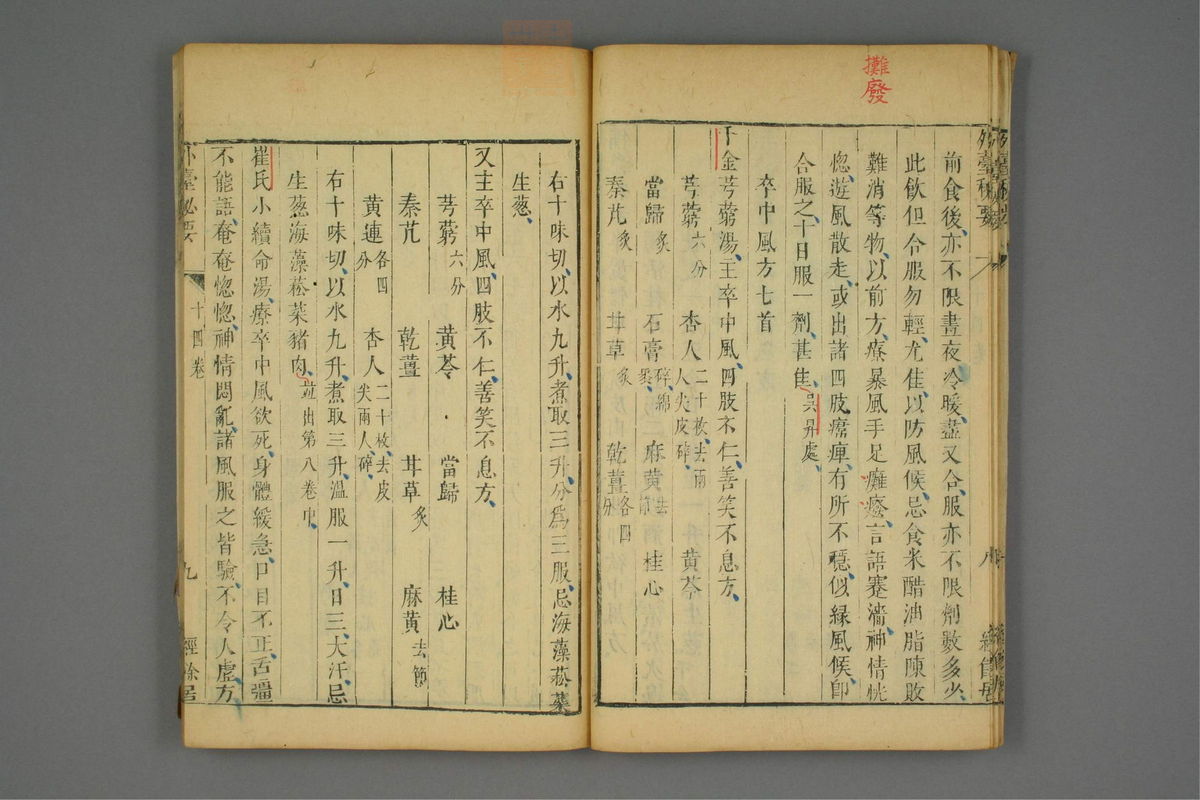 攤
廢
前食後亦不限晝夜冷暖盡又合服亦不限劑數多少
此飲但令服勿輕尤佳以防風候忌食米醋油脂陳敗
難消等物以前方療暴風手足癱瘓言語蹇澁神情恍
惚遊風散走或出諸四肢㾿㾏有所不穩似緣風候卽
合服之十日服一劑甚佳吳昇處
卒中風方七首
千金芎藭湯主卒中風四肢不仁善笑不息方
芎藭六分 杏人二十枚去兩人尖皮碎 黃芩
當歸炙 石膏碎綿裹 麻黃去節 桂心
秦艽炙 甘草炙 乾薑各四分
右十味切以水九升煮取三升分爲三服忌海藻菘菜
生葱
又主卒中風四肢不仁善笑不息方
芎藭六分 黃芩 當歸 桂心
秦艽 乾薑 甘草炙 麻黃去節
黃連各四分 杏人二十枚去皮尖兩人碎
右十味切以水九升煮取三升溫服一升日三大汗忌
生葱海藻菘菜豬肉並出第八卷中
崔氏小續命湯療卒中風欲死身體緩急口目不正舌彊
不能語奄奄惚惚神情悶亂諸風服之皆驗不令人虛方
外臺秘要 十四卷 九 經餘居